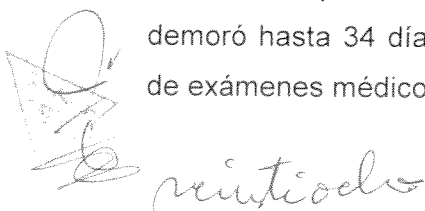 demoró hasta 34 día
de exámenes médico
veintiocho